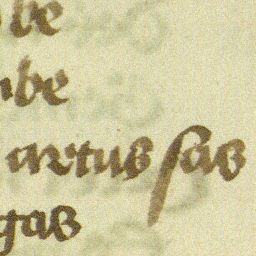 be
be
artus sas
gas